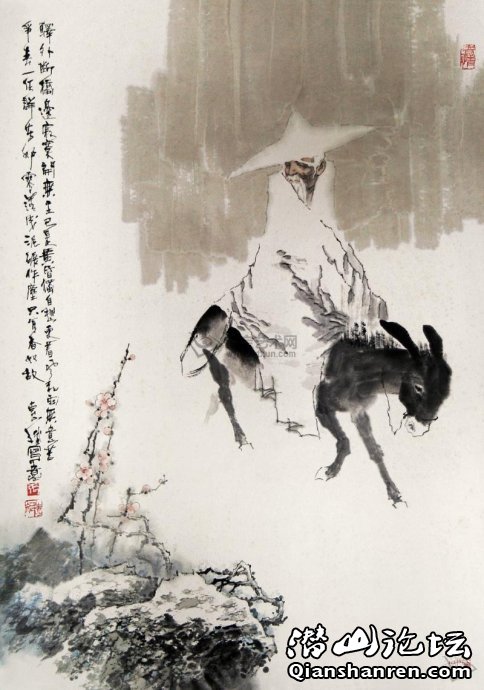 驛外斷橋邊寂寞開無主已是黄昏獨自愁更著風和雨無意苦
爭春一任群芳妒零落成泥碾作塵只有香如故
潜山论坛
Qianshanren.com